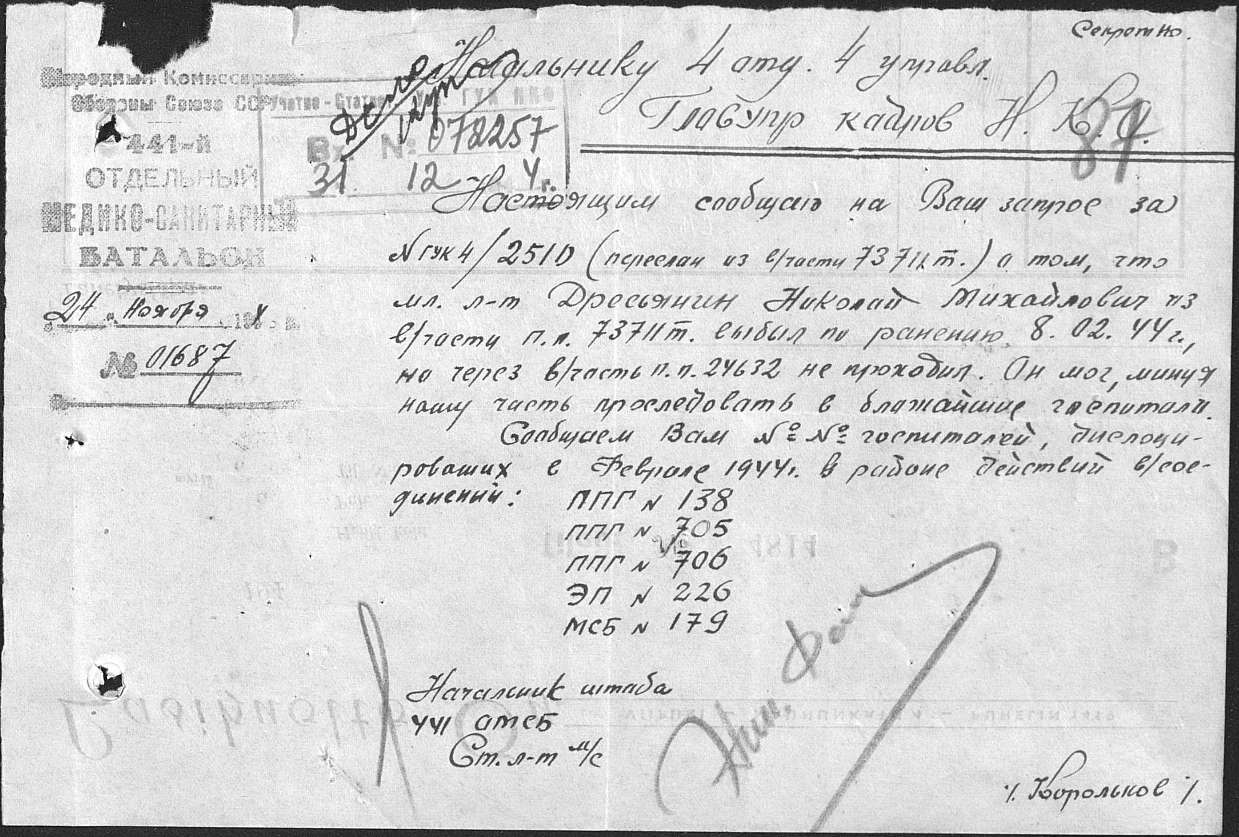 Секретно.
Начальнику 4 отд. 4 управл.
Главупр кадров Н.К.О.
87
Народный Комиссариат
Обороны Союза ССР
441-й
ОТДЕЛЬНЫЙ
МЕДИКО-САНИТАРНЫЙ
БАТАЛЬОН
24 Ноября 194 г.
№ 01687
Учетно-Статист ГУК НКО
Вх. № 072257
31 12 4 г.
Настоящим сообщаю на Ваш запрос за
N ГУК4/2510 (переслан из в/части 73711т.) о том, что
мл. л-т Дресьянин Николай Михайлович из
в/части п.п. 73711т. выбыл по ранению 8.02.44г.,
но через в/часть п.п. 24632 не проходил. Он мог, минуя
нашу часть проследовать в ближайшие госпитали.
Сообщаем Вам №№ госпиталей, дислоци-
роваших в Феврале 1944г. в районе действий в/сое-
динений:
ППГ N 138
ППГ N 705
ППГ N 706
ЭП N 226
МСБ N 179
Начальник штаба
441 ОМСБ
Ст. л-т м/с
/. Корольков /.